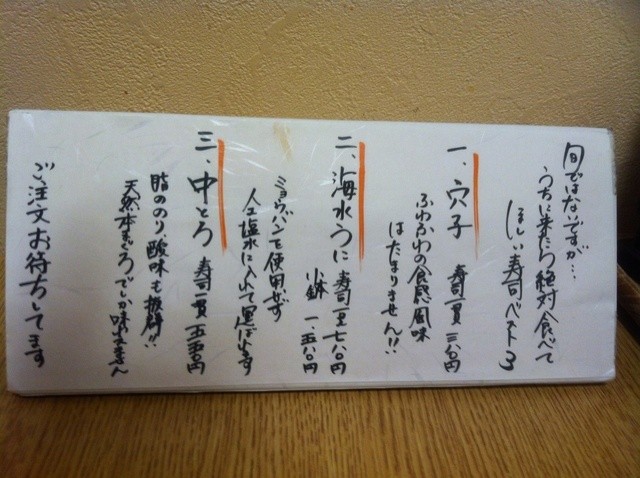 旬ではないですが…
うちに来たら絶対食べて
ほしい寿司ベスト3
一、穴子 寿司一貫 三八〇円
ふわふわの食感、風味
はたまりません!!
二、海水うに 寿司一貫 七八〇円
小鉢 一、五八〇円
ミョウバンを使用せず
人工塩水に入れて運ばれます
三、中とろ 寿司一貫 五五〇円
脂ののり、酸味も抜群!!
天然本まぐろでしか味わえません
ご注文お待ちしてます